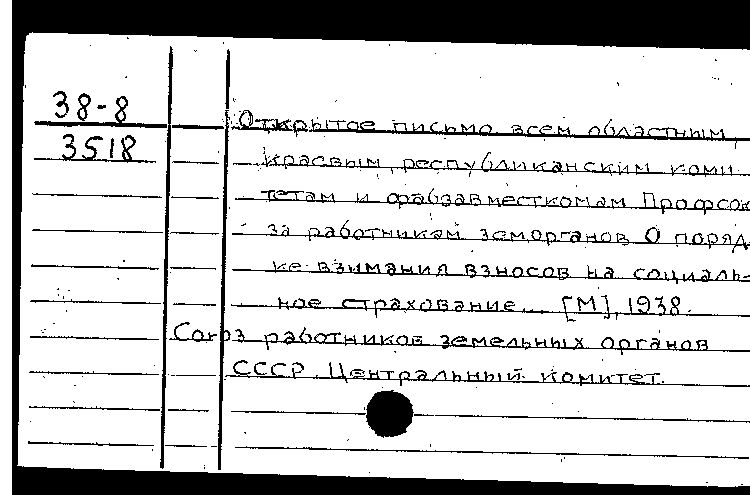 38-8
3518
Открытое письмо всем областным,
краевым, республиканским коми
тетам и фабзавместкомам Профсою
за работникам земорганов О поряд
ке взимания взносов на социаль-
ное страхование... [М], 1938.
Союз работников земельных органов
СССР. Центральный комитет.